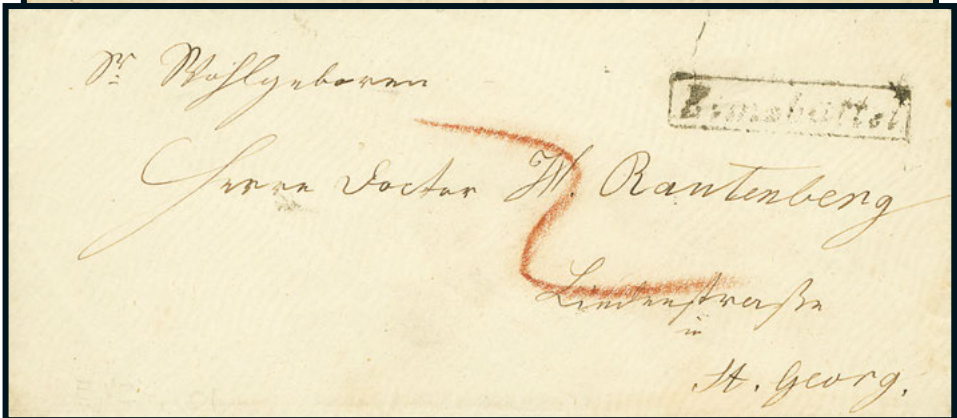 Sr Wohlgeboren
Eimsbüttel
Herrn Doctor W. Rautenberg
Lindenstraße
in
St. Georg.